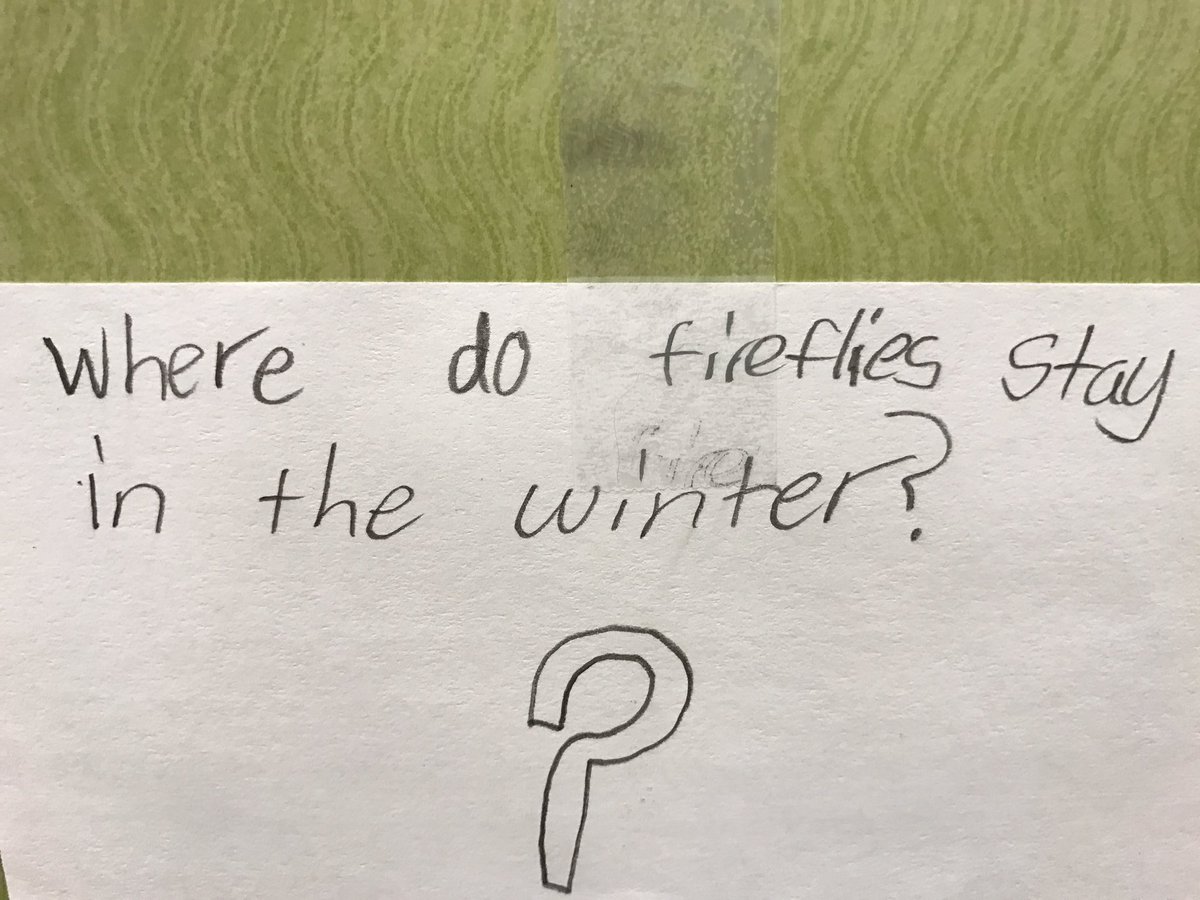 where do fireflies stay
in the winter?
?